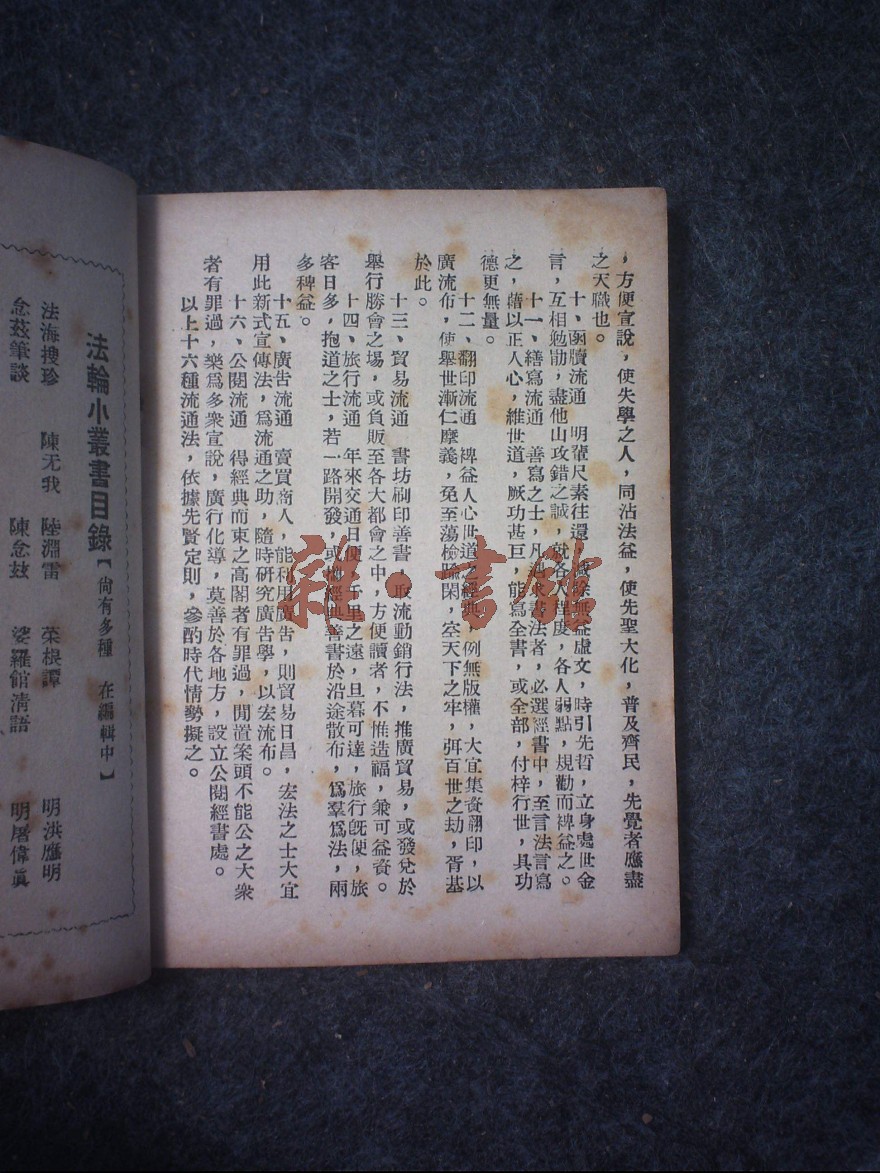 ，方便宣說，使失學之人，同沾法益，使先聖大化，普及齊民，先覺者應盡
之天職也。
十、函牘流通　明輩尺素往還，減除無益虛文，時引先哲，立身處世金
言，互相勉勖，盡他山攻錯之誠，就各人程度，各人弱點，規勸而裨益之。
十一、繕寫流通　善寫之士，凡遇求書法者，必選經書中，至言法言寫
之，藉以正人心，維世道，厥功甚巨，能寫全書，或全部，付梓行世，具功
德更無量。
十二、翻印流通　裨益人心世道之經典，例無版權，大宜集資翻印，以
廣流布，使舉世漸仁摩義，免至蕩檢踰閑，空天下之牢，弭百世之劫，胥基
於此。
十三、貿易流通　書坊刷印善書，取流動銷行法，推廣貿易，或發兌於
舉行勝會之場，或負販至各大都會之中，方便讀者，不惟造福，兼可益資。
十四、旅行流通　年來交通日便，千里之遠，旦暮可達，旅行旣便，旅
客日多，抱道之士，若一路開發，或擕經典善書於沿途散布，爲羣爲法，兩
多裨益。
十五、廣告流通　賣買商人，能利用廣告，則貿易日昌，宏法之士大宜
用此新式宣傳法，爲流通之助，隨時研究廣告學，以宏流布。
十六、公閱流通　得經典而束之高閣者有罪過，閒置案頭不能公之大衆
者有罪過，樂爲多衆宣說，廣行化導，莫善於各地方，設立公閱經書處。
以上十六種流通法，依據先賢定則，參酌時代情勢擬之。
法輪小叢書目錄【尙有多種　在編輯中】
法海搜珍　陳无我　陸淵雷　菜根譚　明洪應明
念玆筆談　陳念玆　娑羅館淸語　明屠偉眞
雜·書館